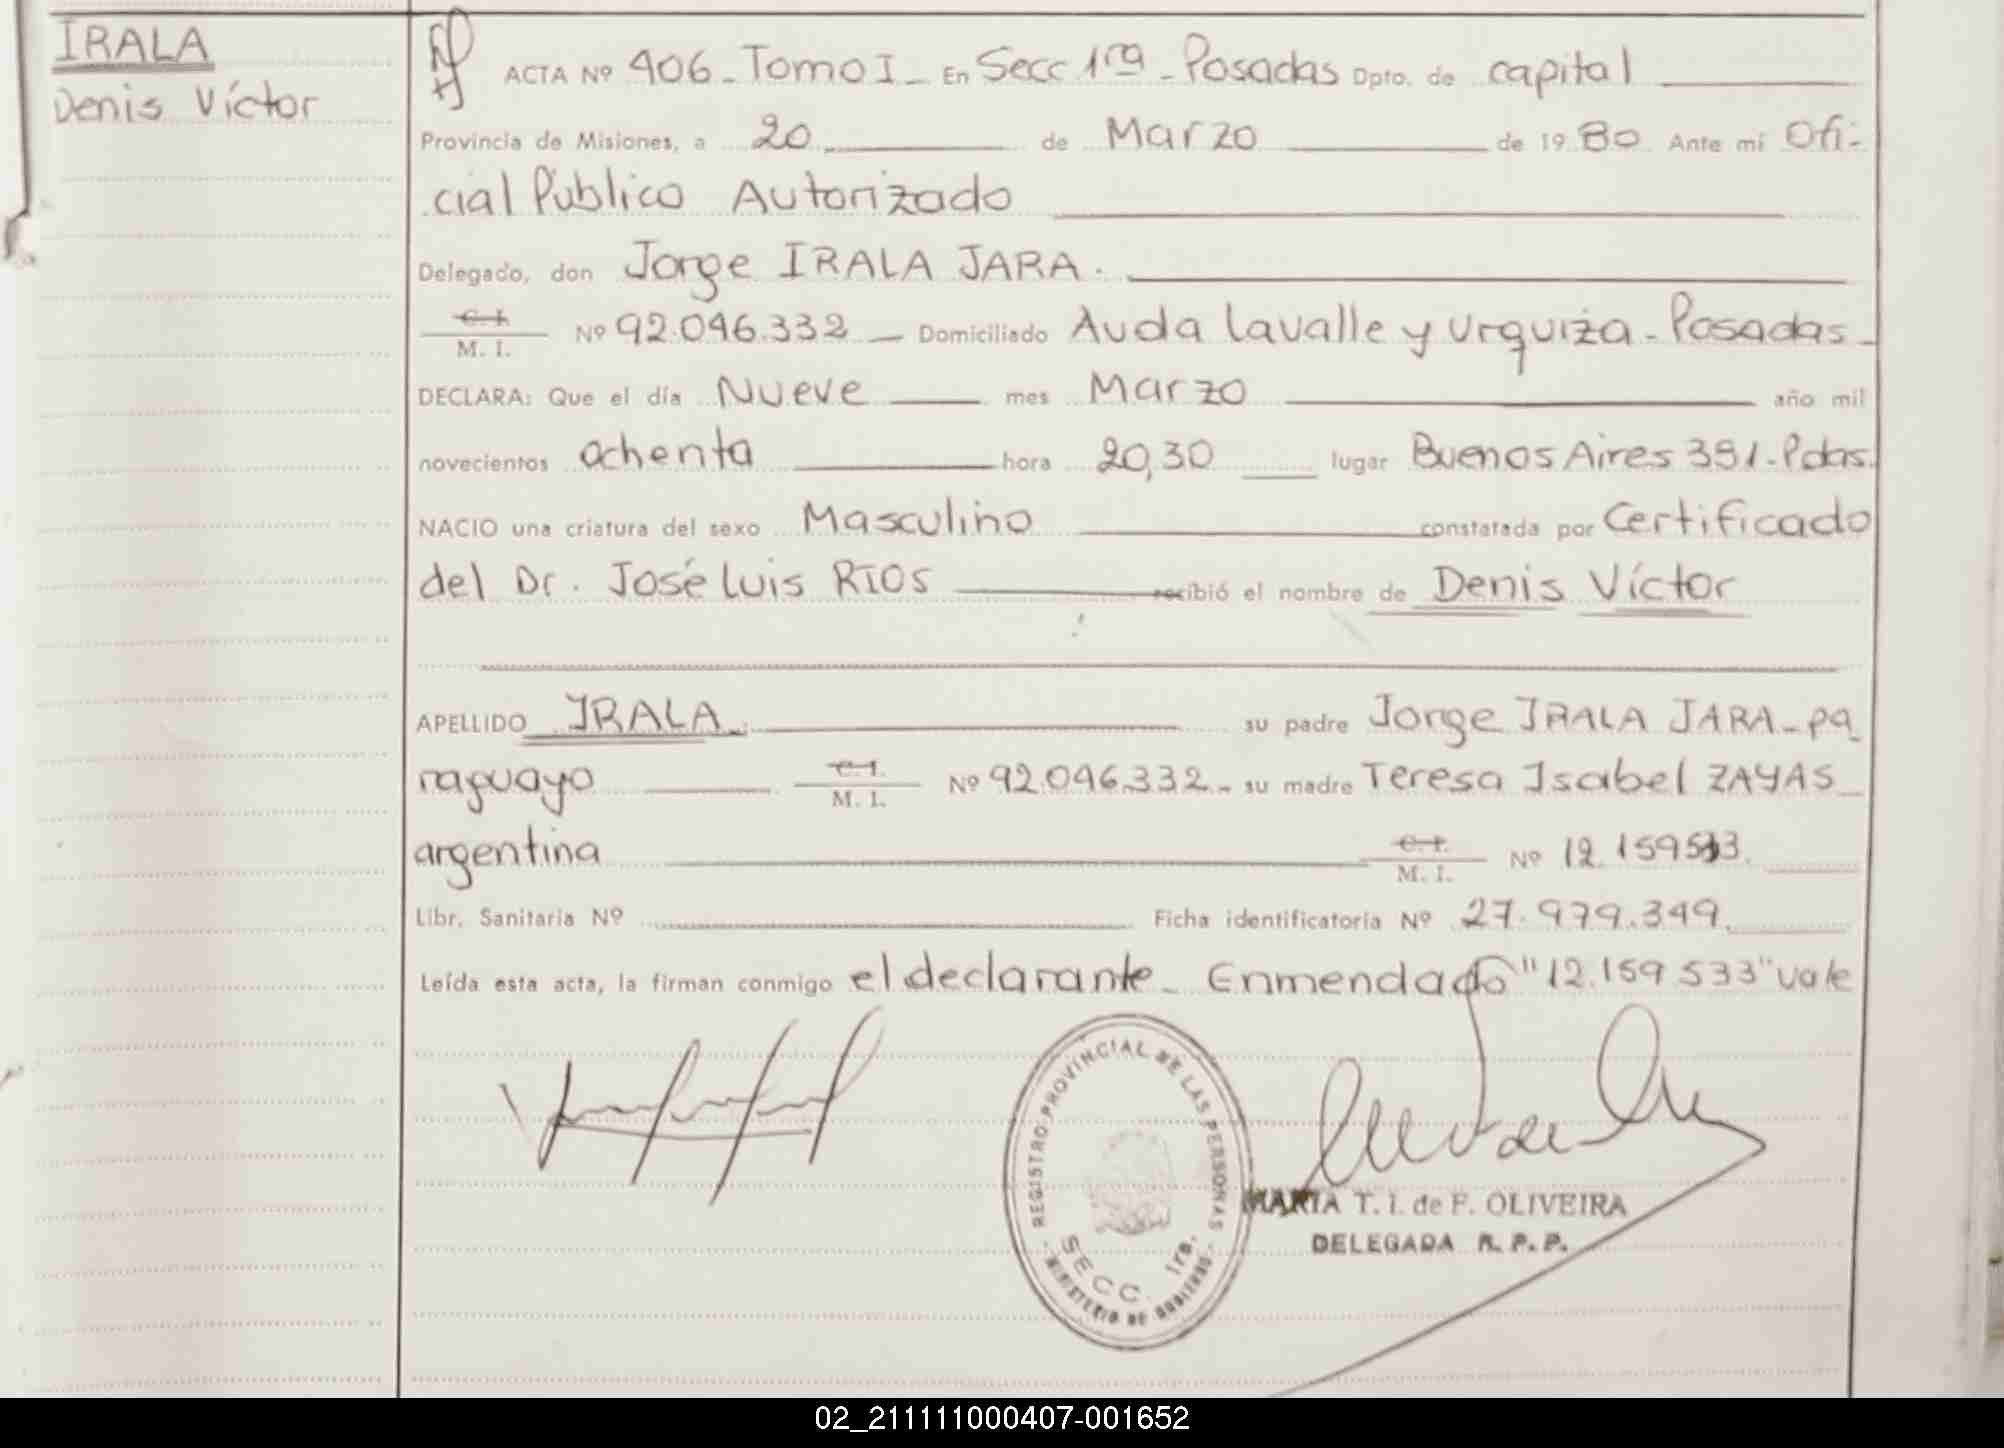 IRALA
Denis Víctor
ACTA Nº 406 - Tomo I - En Secc 1ra - Posadas Dpto. de capital
Provincia de Misiones, a 20 de Marzo de 1980 Ante mí Ofi-
cial Público Autorizado
Delegado, don Jorge IRALA JARA.
C. I.
M. I. Nº 92.046.332 - Domiciliado Avda Lavalle y Urquiza - Posadas -
DECLARA: Que el día Nueve mes Marzo año mil
novecientos ochenta hora 20,30 lugar Buenos Aires 391 - Pdas.
NACIO una criatura del sexo Masculino constatada por Certificado
del Dr. José Luis RIOS recibió el nombre de Denis Víctor
APELLIDO IRALA su padre Jorge IRALA JARA - pa
raguayo C. I.
M. I. Nº 92.046.332 - su madre Teresa Isabel ZAYAS
argentina C. I.
M. I. Nº 12.159.533.
Libr. Sanitaria Nº Ficha identificatoria Nº 27.979.349.
Leída esta acta, la firman conmigo el declarante - Enmendado "12.159.533" vale
REGISTRO PROVINCIAL DE LAS PERSONAS
SECC. 1ra.
MINISTERIO DE GOBIERNO
MARIA T. I. de F. OLIVEIRA
DELEGADA R. P. P.
02_211111000407-001652